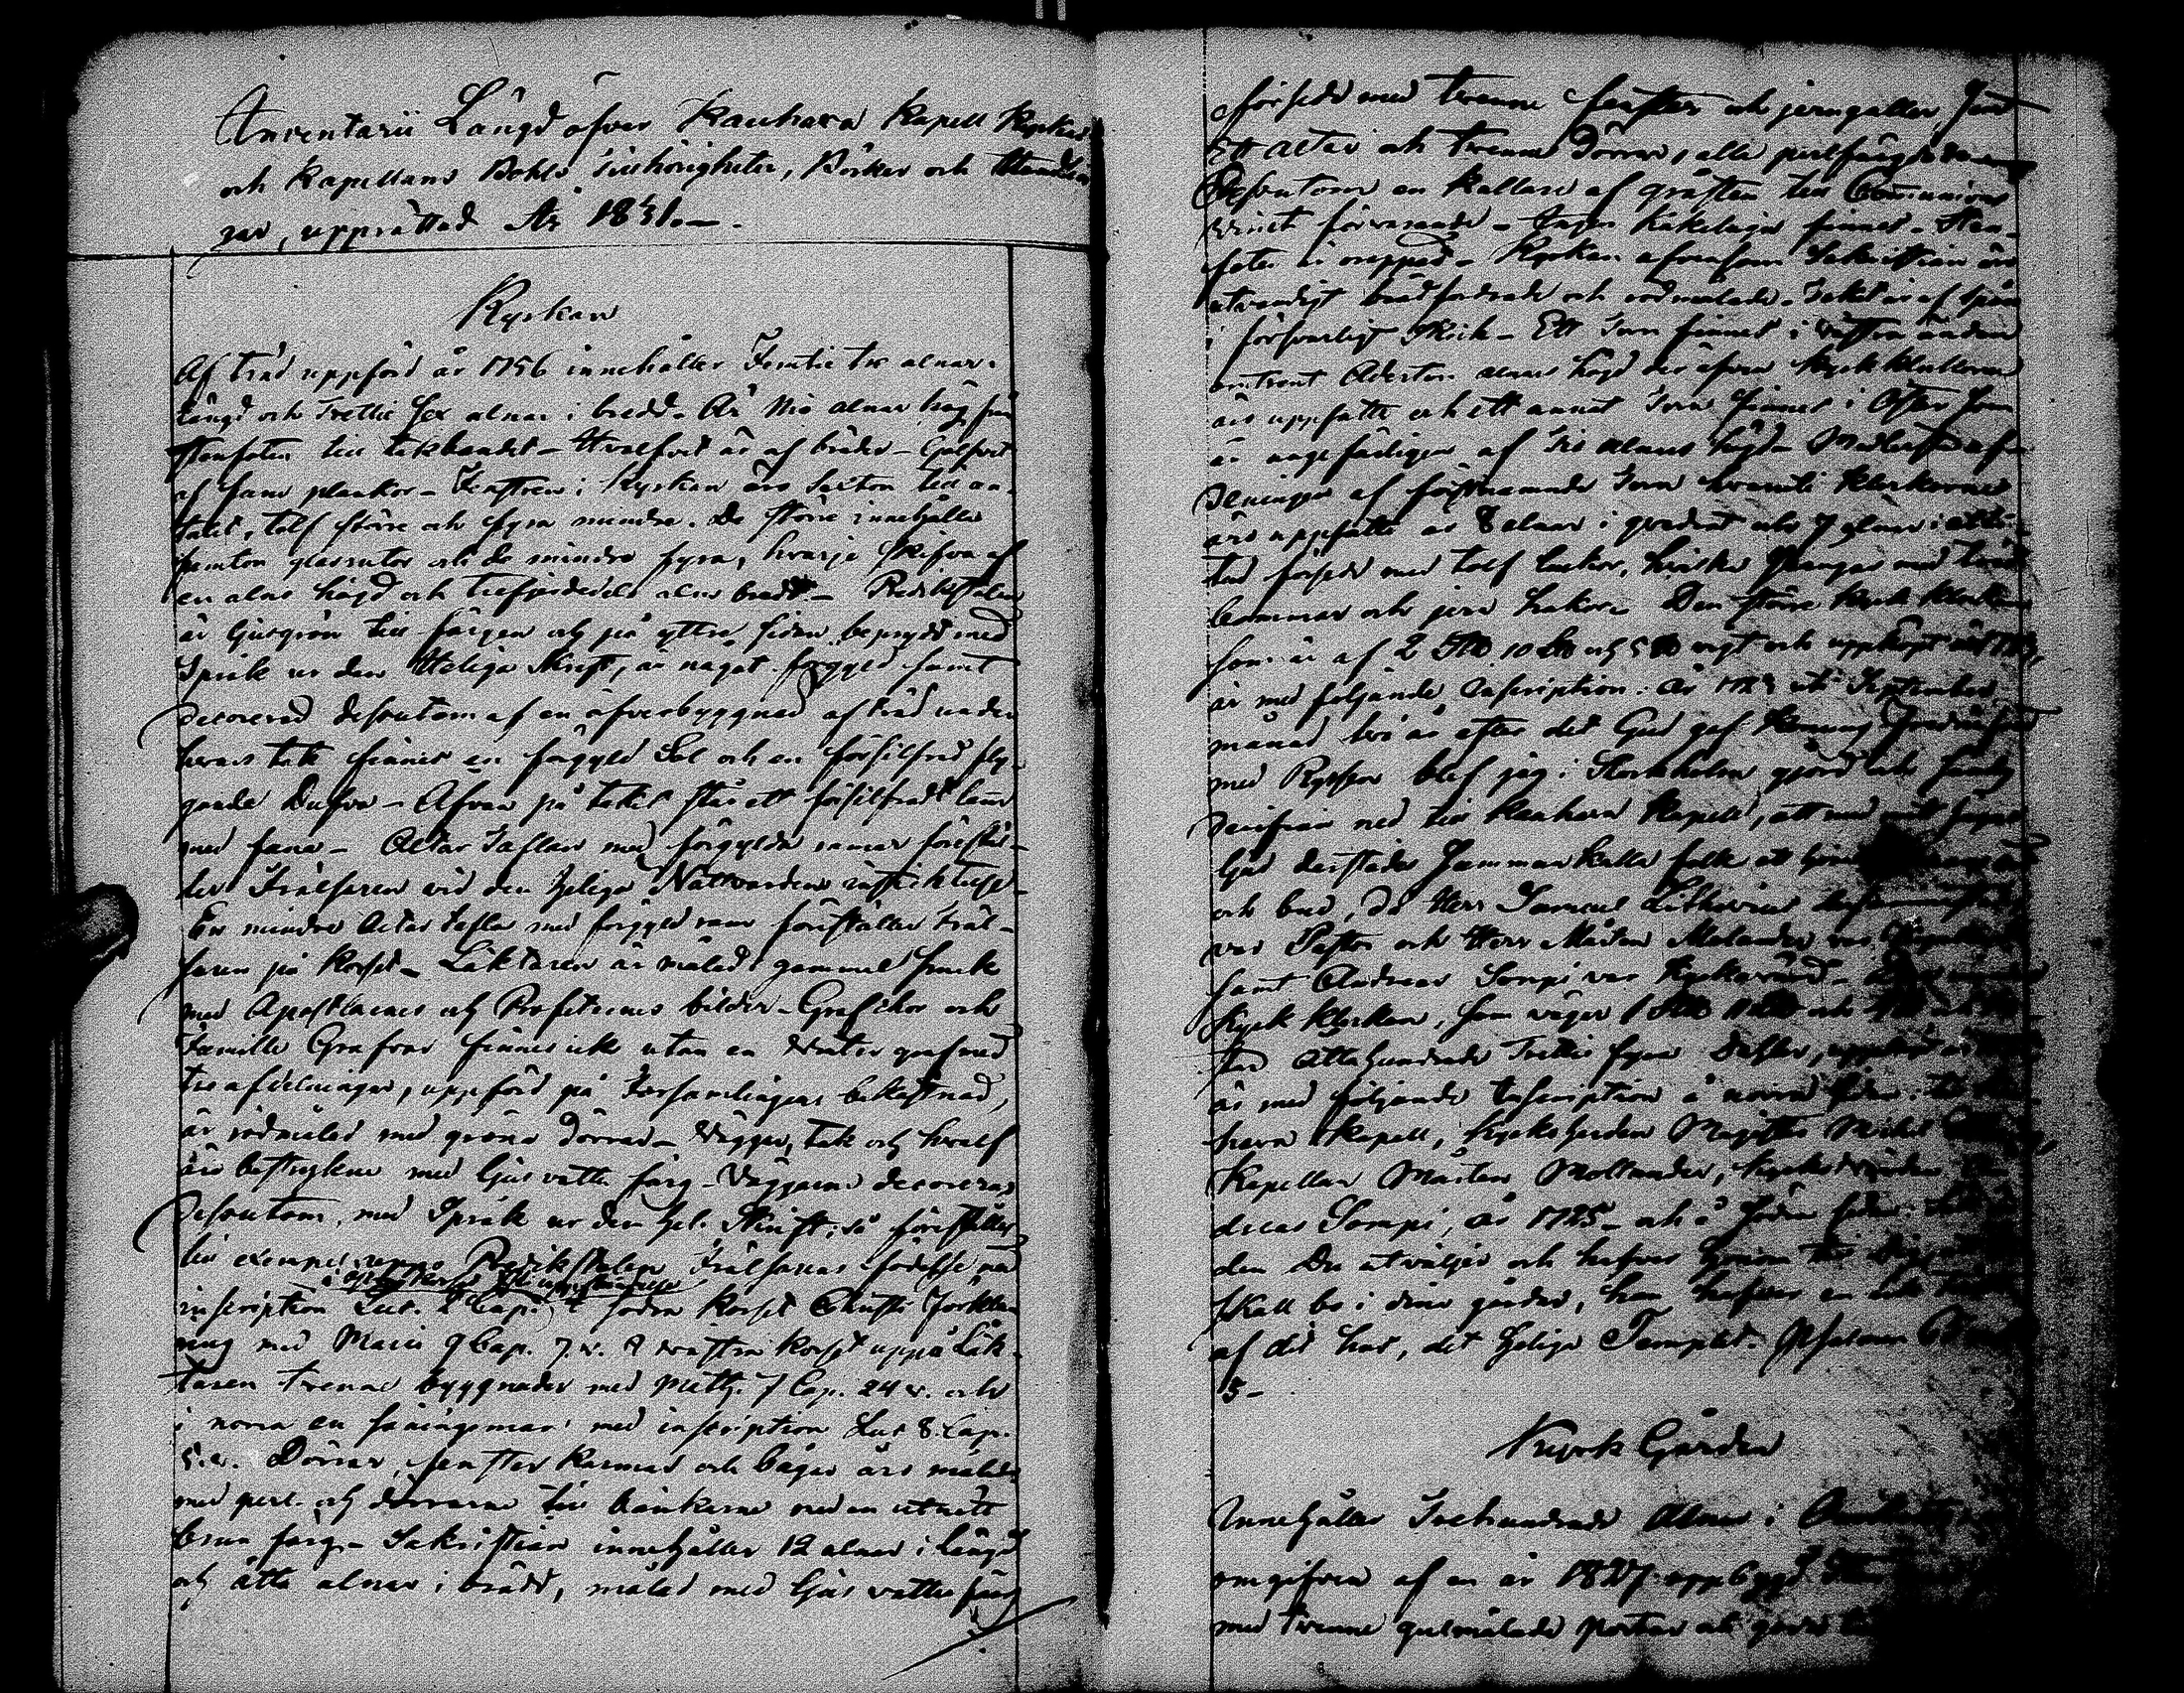 Inventarii Längd öfver Kauhava Kapell Kyrkas
och Kapellans Bohls Tillhörigheter, Böcker och Handlin
gar, upprättad År 1831.-
Kyrkan
Af träd uppförd år 1756 innehåller Femtie tre alnar i
längd och Trettie Sex alnar i bredd. Är Nio alnar hög från
stenfoten till takbandet - Hvalfvet är af bräder - Golfvet
af sam plankor - Fenstren i Kyrkan äro Sexton till an-
talet, tolf större och fyra mindre. De större innehålla
femton glasrutor och de mindre fyra, hvarje skifva af
en alns höjd och trefjerdedels alns bredd - Predikstolen
är ljusgrön till färgen och på yttre sidan beprydd med
Språk ur den Heliga Skrift, är något förgyld samt
decorerad dessutom af en öfverbyggnad af träd under
hvars tak finnes en förgyld Sol och en försilfrad fly-
gande Dufva - Ofvan på taket står ett försilfradt lam
med fana - Altar Taflan med förgylda ramar förestäl-
ler Frälsaren vid den heliga Nattvardens instiktelse -
En mindre Altar tafla med förgyld ram föreställer Fräl-
saren på Korset - Läktaren är målad i gammal smak
med Apostlarnes och Profeternes bilder - Grafchor och
Familie Grafvar finnes icke utan en Vinter graf med
tre afdelningar, uppförd på Församlingens bekostnad,
är rödmålad med gröna dörrar - Väggar, tak och hvalf
äro bestrykne med ljus vatten färg - Väggarne decoreras
dessutom, med Språk ur den hel. Skrift; så föreställes
till exempel uppå Predikstolen Frälsarens födelse med
inscription Luc. 2 Cap. i södra Korset Christi Förkla-
ring med Marci 9 Cap. 7. v. I vestra Korset uppå Läk-
taren trenne byggnader med Math. 7 Cap. 24 v. och
i norra en såningsman med inscription Luc 8. Cap.
5. v. Dörrar, fenster karmar och bågar äro målade
med perl- och dörrarne till bänkarne med en
brun färg. - Sakristian innehåller 12 alnar i längd
och åtta alnar i bredd, målad med ljus vatten färg
försedd med trenne fenster och jerngaller, samt
Ett altar och trenne dörrar, alla perlfärgade
Dessutom en Källare af gråsten till Communions
vinets förvarande - Ingen Kakelugn finnes - Sten-
foten är rappad - Kyrkan afvensom Sakristian äro
utvändigt brädfordrade och rödmålade. Taket är af Spån
i försvarligt skick - Ett Torn finnes i vestra ändan
omtrent Aderton alnars höjd der öfvra Kyrkklockorna
äro uppsatte och ett annat Torn finnes i Öster som
är ungefärligen af Tio alnars höjd - Medlersta af-
delningen af förstnämnde Torn hvaruti Klockorne
äro uppsatte är 8 alnar i qvadrat och 7 alnar i alti-
tud försedd med tolf luckor, hvilka stängas med träd
bommar och jern hakar. Den större Kyrk Klockan
som är af 2 10 och 5 vigt och uppköpt
är med följande inscription: år 1723 uti September
månad två år efter det Gud gaf Konung Fredric frid
med Ryssen blef jag i Stockholm gjord och sänd
derifrån ned till Kauhava Kapell, att med mitt
ljud derstädes Sammankalla folk att
och bud, då Herr Samuel Lithovius
var Pastor och Herr Mårten Molander var
samt Andreas Sompi var Kyrkovärd -
Kyrk klockan, som väger 1
Åttahundrade Trettio fyra Dahler, uppköpt
är med följande inscription å norra sidan: till Kau-
hava Kapell, Kyrkoherden Magister
Kapellan Mårten Molinader, Kyrko Värden An-
dreas Sompi, år 1725 - och å södra sidan:
den Du utväljer och hafver honom till Dig, att
skall bo i dina gårdar, han hafver en
af ditt hus, det heliga Templet. Psalmen 65
5 -
Kyrk Gården
Innehåller Trehundrade Alnar i
omgifven af en år 1827 uppbygd
med trenne gulmålade portar och